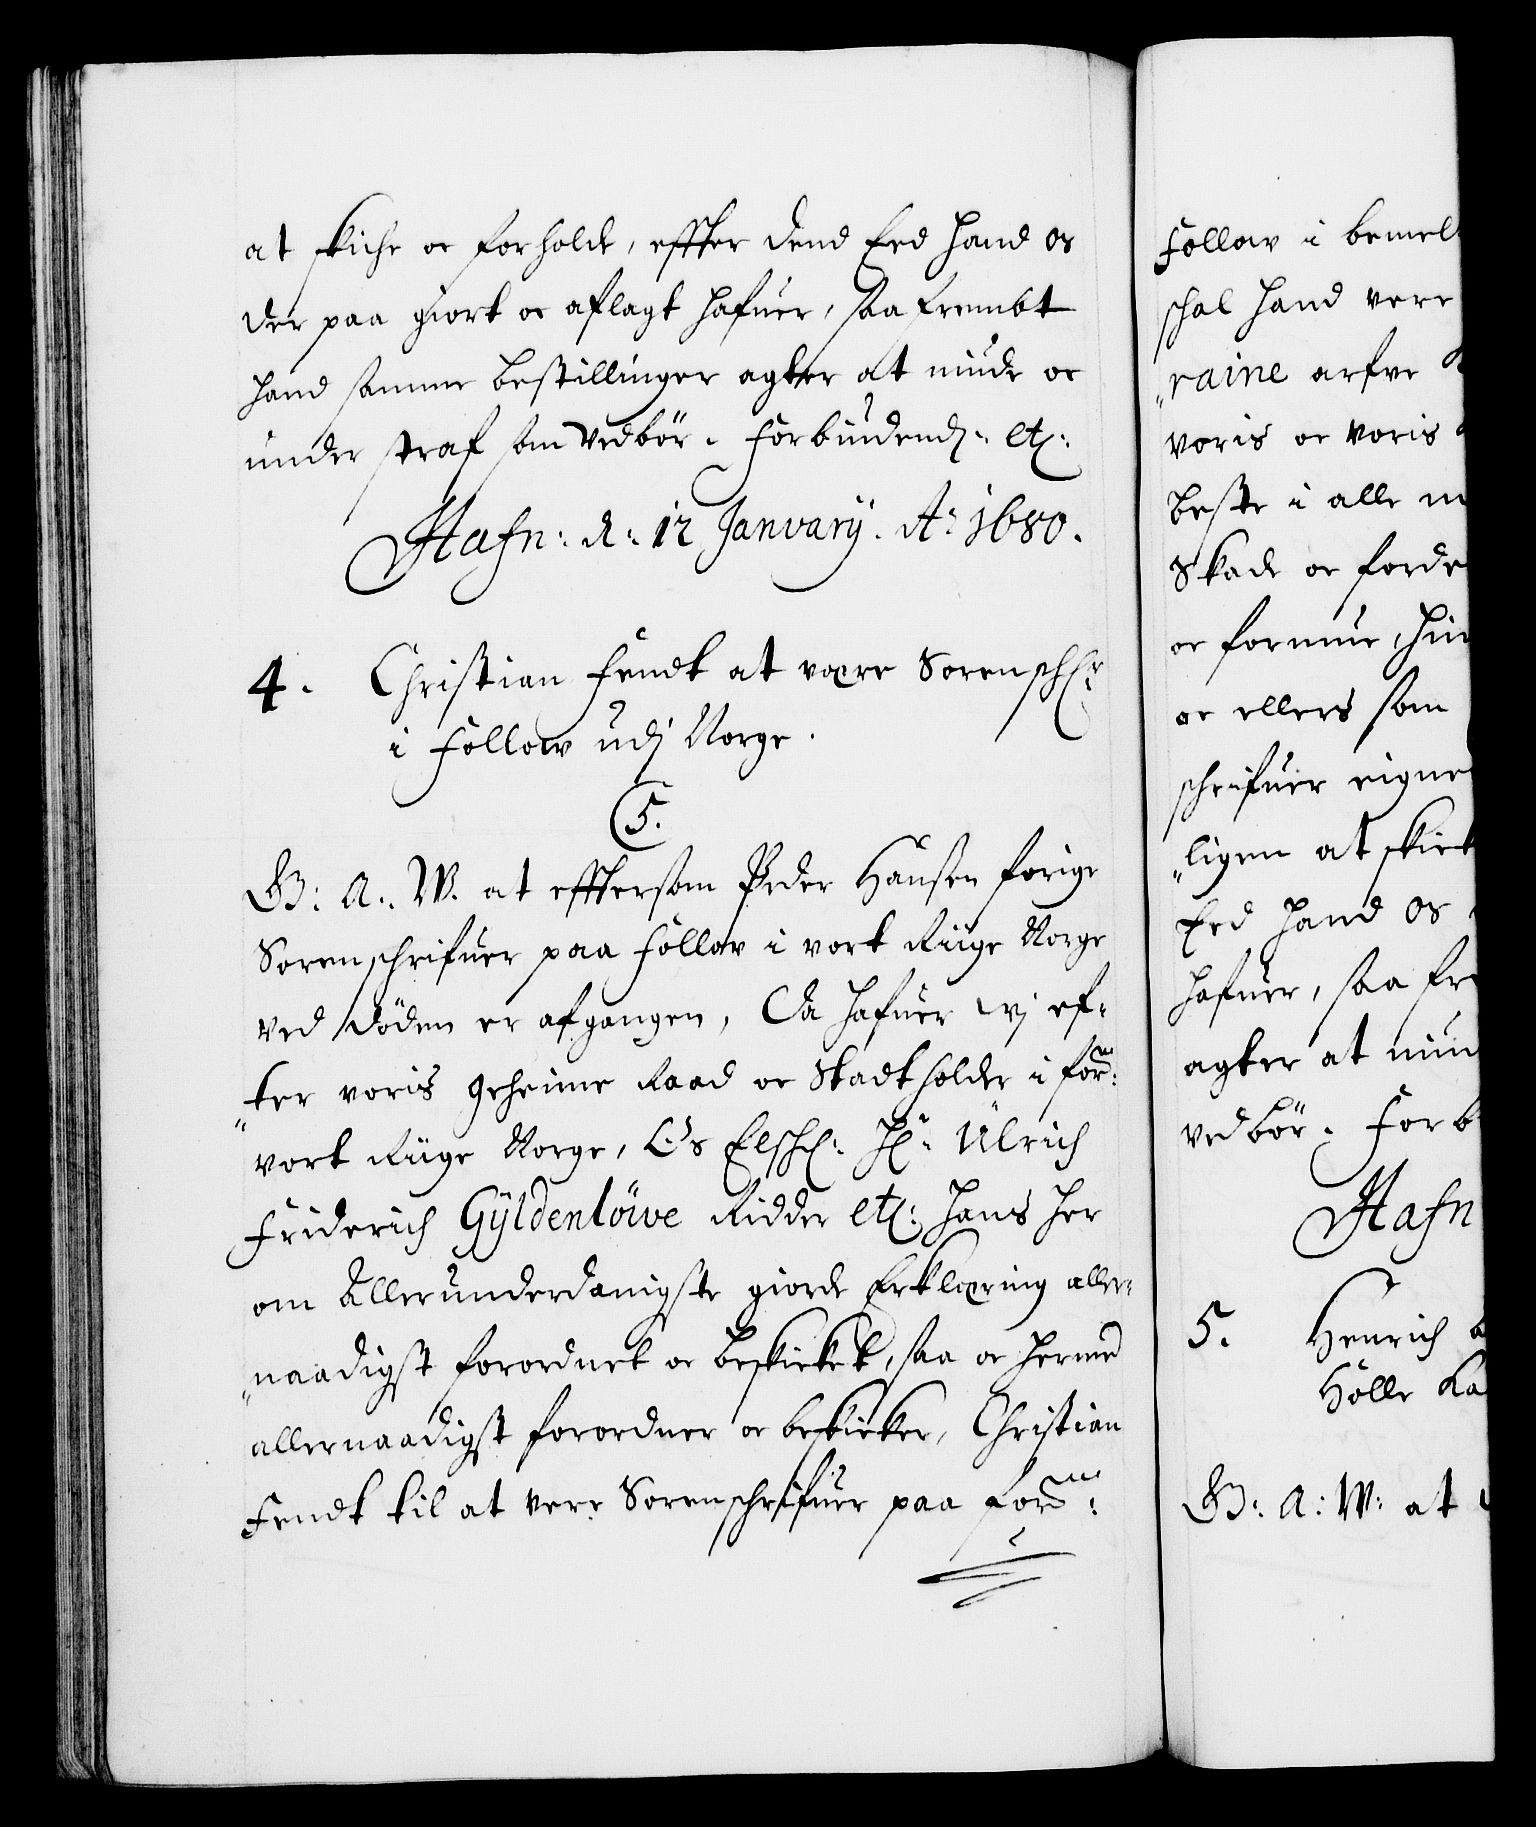 at skiche oc forholde, effter dend Eed hand os
der paa giort oc aflagt hafuer, saa frembt
hand samme bestillinger agter at niude oc
under straf som vedbör. Forbiudend: etc:
Hafn: d: 12 January. A: 1680.
4. Christian Fendt at være Sorenschr:
i Follow udj Norge.
C5.
G: A: W. at efftersom Peder Hansen forige
Sorenschrifuer paa Follow i vort Riige Norge
ved döden er afgangen, Da hafuer wj ef-
ter voris geheime Raad oc Stadtholder i for:
vort Riige Norge, Os Elschl: Hr: Ulrich
Friderich Gÿldenlöwe Ridder etc: hans her
om Allerunderdanigste giorde Erklæring aller-
naadigst forordnet oc beskicket, saa oc hermed
allernaadigst forordner oc beskicker, Christian
Fendt til at vere Sorenschrifuer paa form:
Follow i bemel
schal hand vere
raine arfve
voris oc voris
beste i alle m
Skade oc forde
oc formue, hin
oc ellers som
schrifuer eigne
ligen at skick
Eed hand os
hafuer, saa fre
agter at niud
vedbör. Forb
Hafn
5. Henrich
Hölle Ka
G: A: W: at